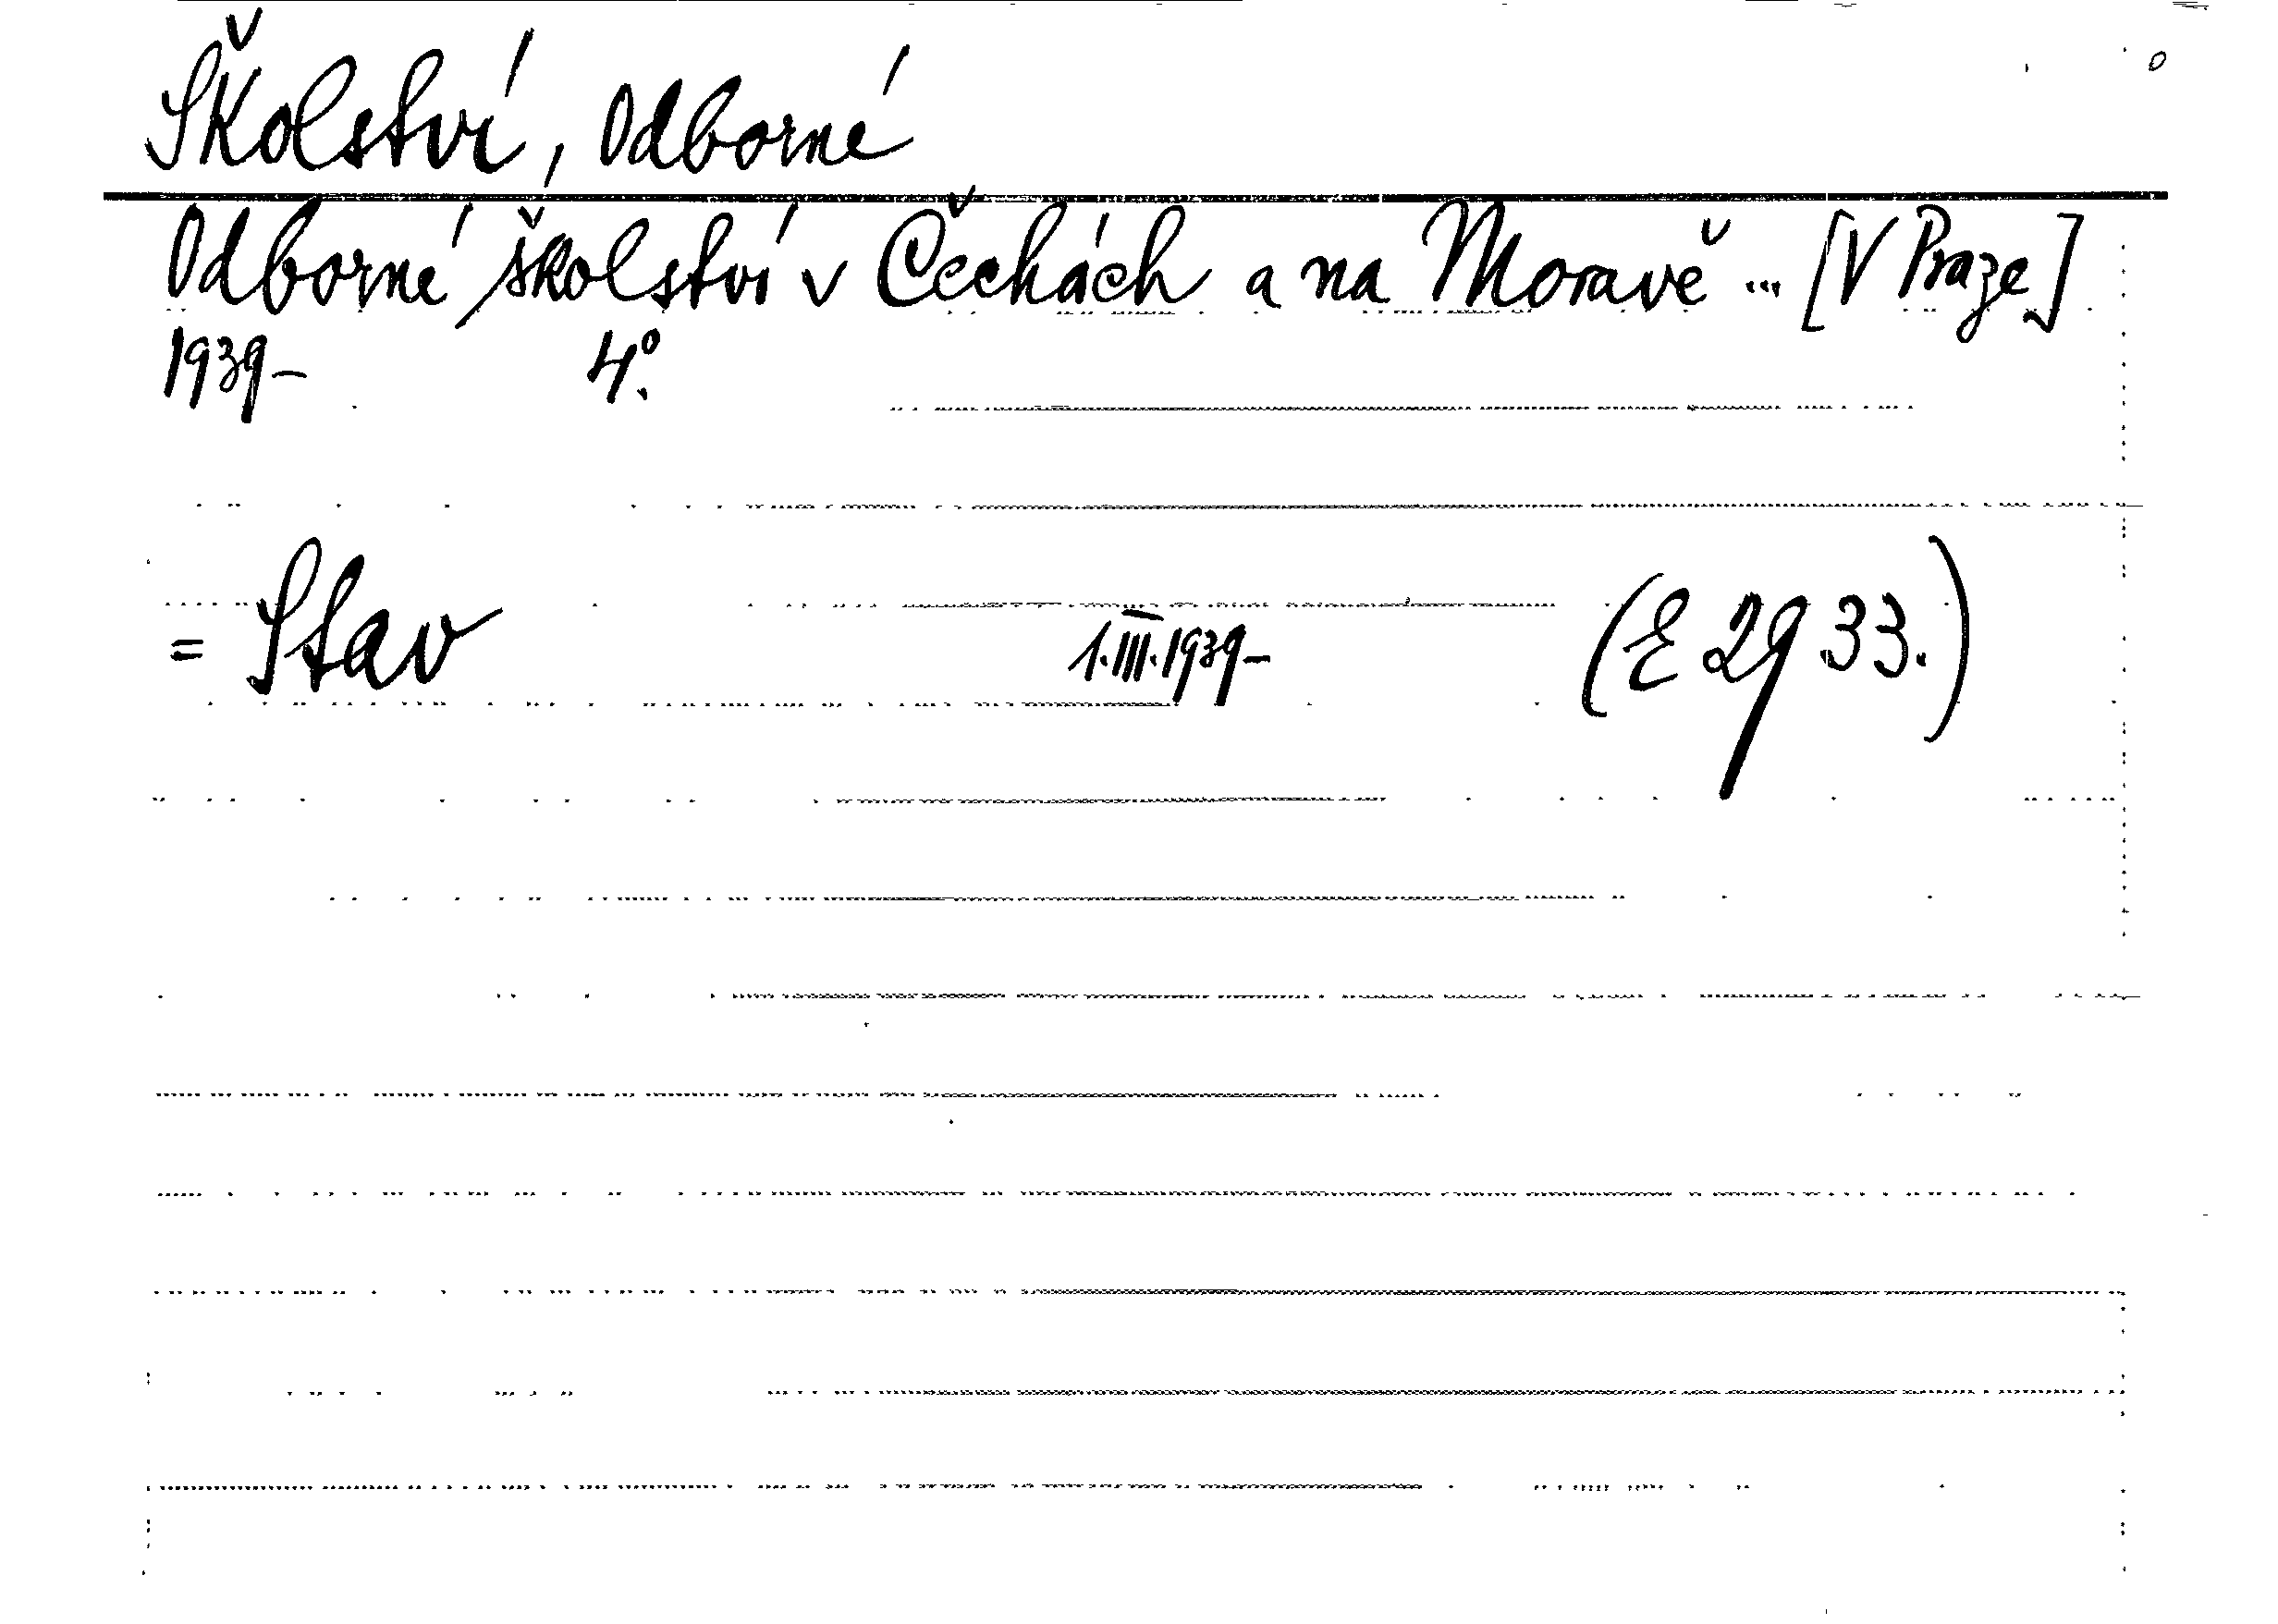 Školství, Odborné
Odborné školství v Čechách a na Moravě ... [V Praze]
1939- 4º.
= Stav 1.III.1939- (E 2933.)